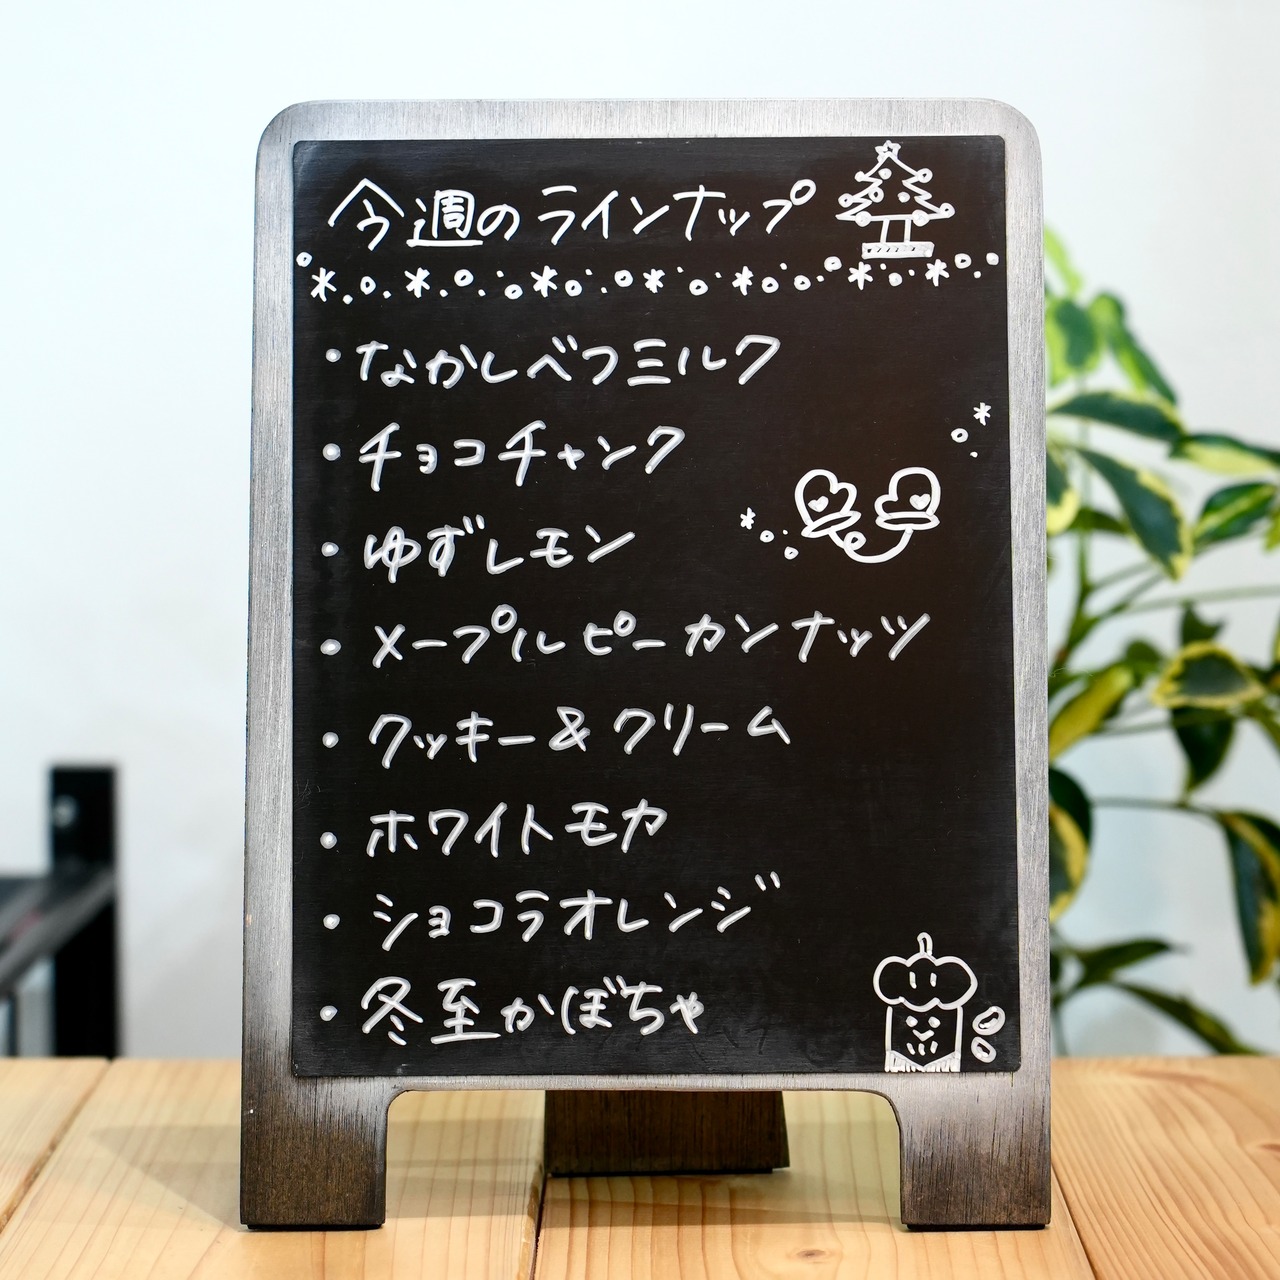 今週のラインナップ
・なかしべつミルク
・チョコチャンク
・ゆずレモン
・メープルピーカンナッツ
・クッキー&クリーム
・ホワイトモカ
・ショコラオレンジ
・冬至かぼちゃ